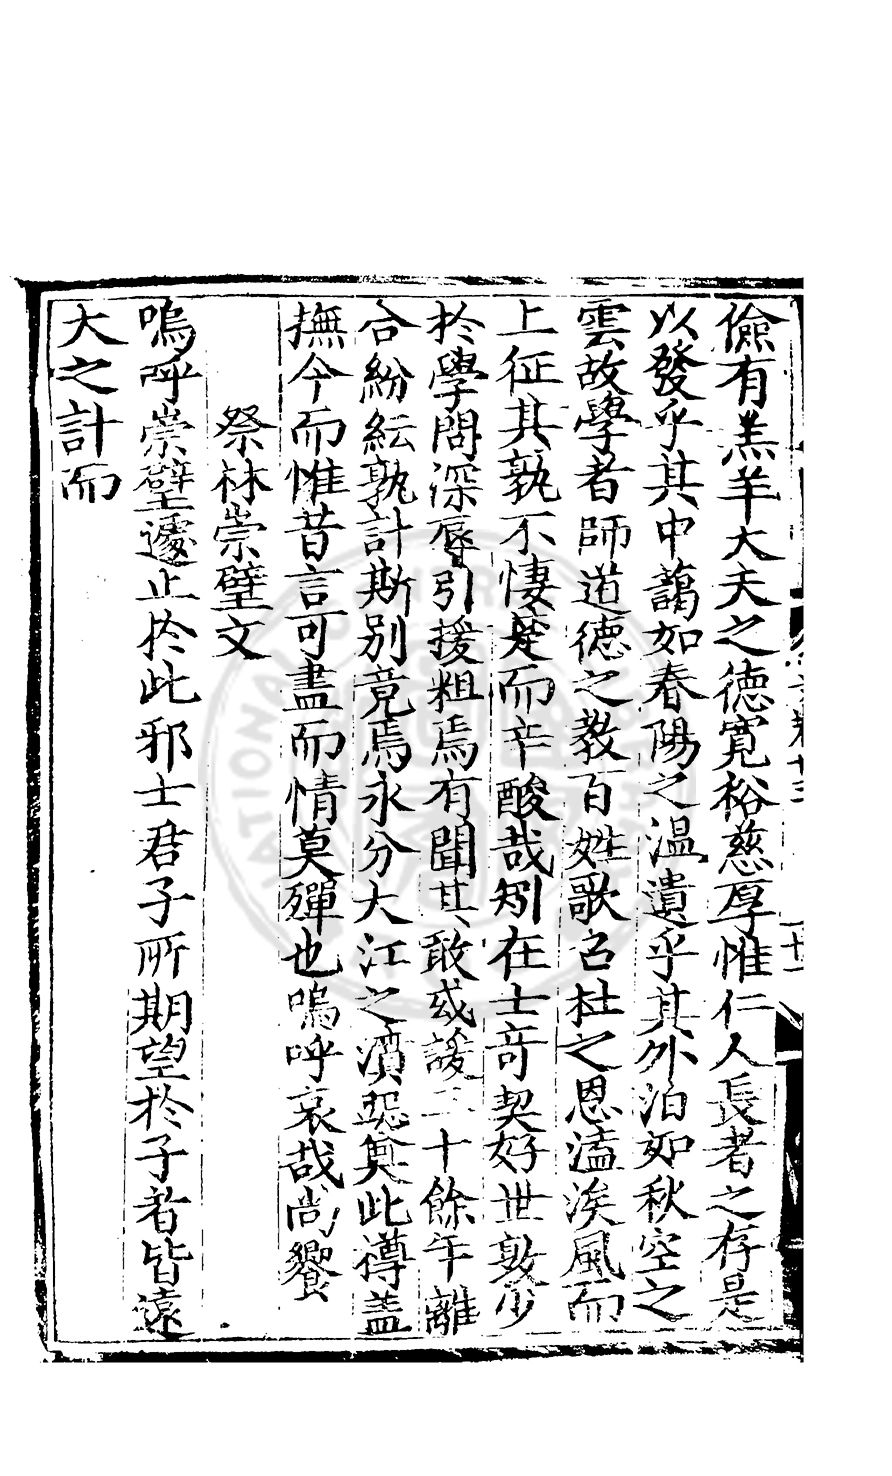 儉有羔羊大夫之德寬裕慈厚惟仁人長者之存是
以發乎其中藹如春陽之温遺乎其外泊如秋空之
雲故學者師道德之教百姓歌召杜之恩溘涘風而
上征其孰不悽楚而辛酸哉矧在士竒契好世敦少
扵學問深辱引援粗焉有聞其敢或諼二十餘年離
合紛紜孰計斯别竟焉永分大江之濆惡奠此禫盖
撫今而惟昔言可盡而情莫殫也嗚呼哀哉尚饗
祭林崇璧文
嗚呼崇璧遽止扵此邪士君子所期望扵子者皆遠
大之計而
卷十三
十一